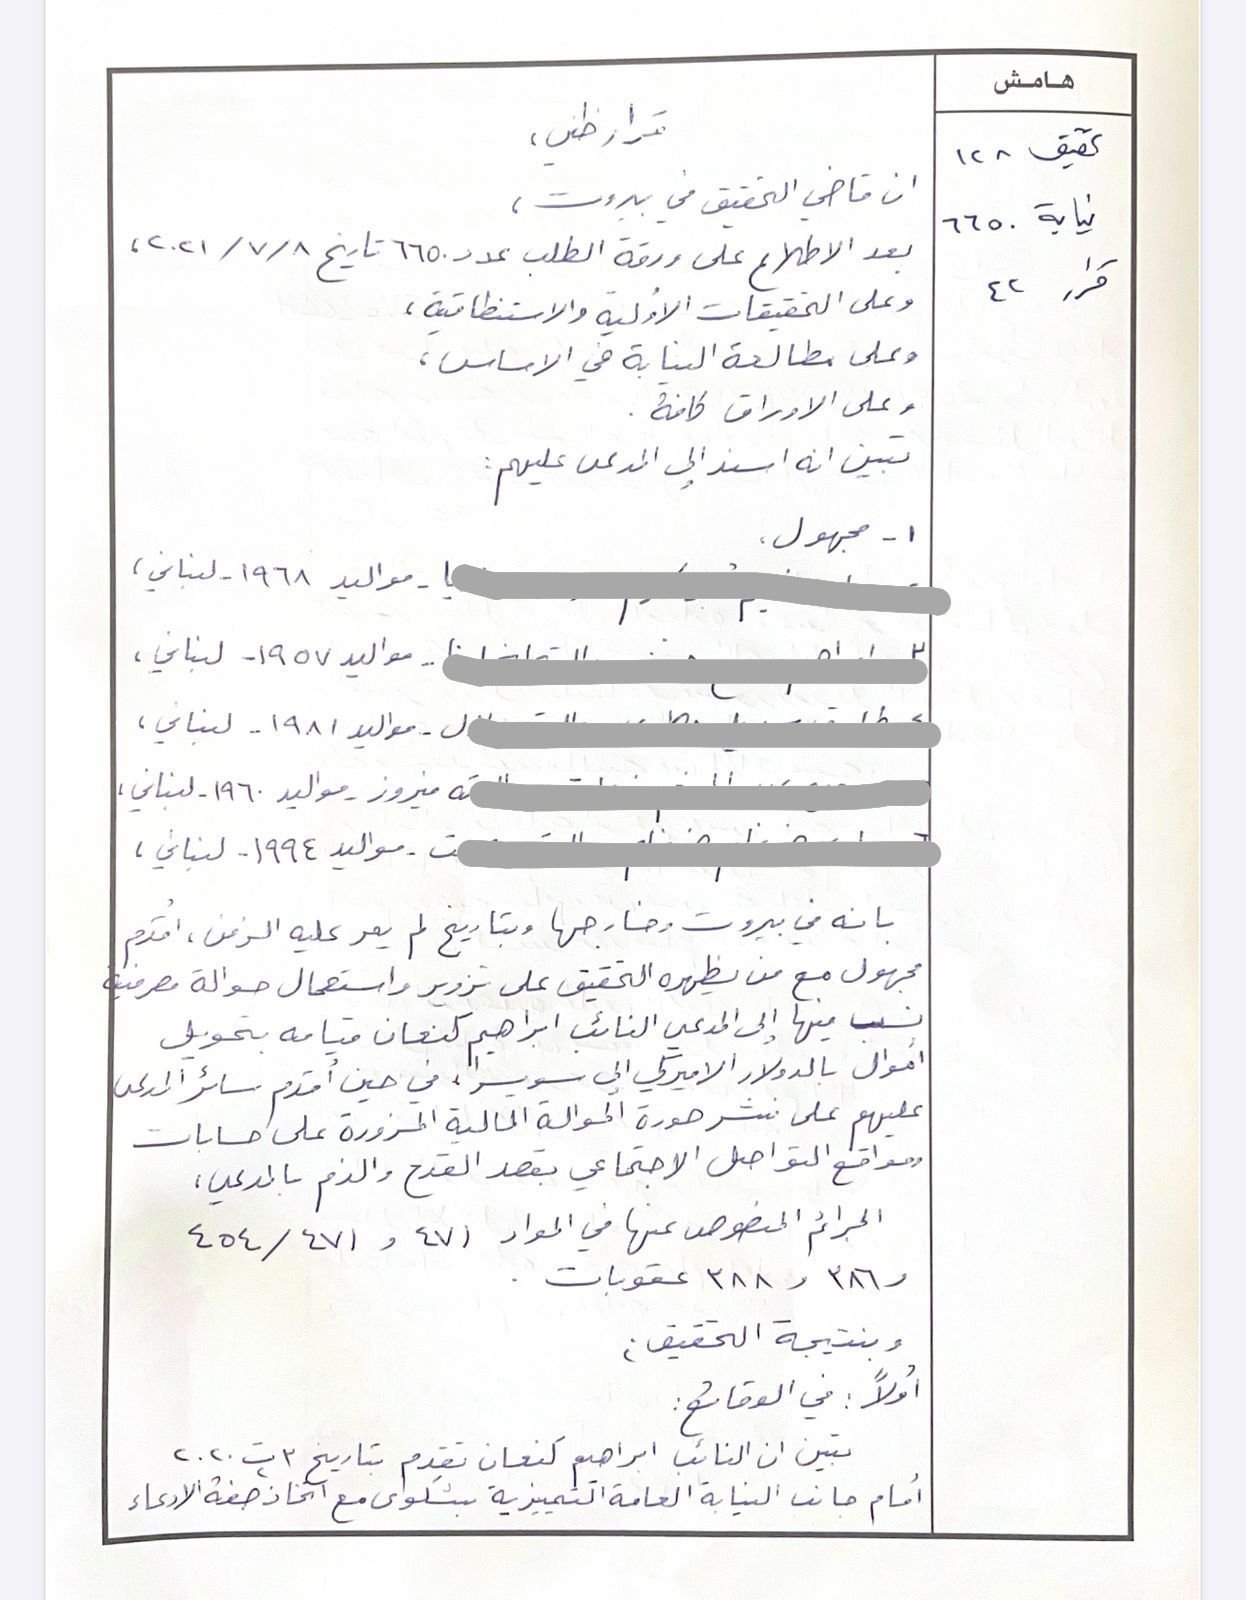 هامش
تحقيق ١٢٨
نيابة ٦٦٥٠
قرار ٤٢
قرار ظني،
ان قاضي التحقيق في بيروت،
بعد الاطلاع على ورقة الطلب عدد ٦٦٥٠ تاريخ ٢٠٢١/٧/٨،
وعلى التحقيقات الأولية والاستنطاقية،
وعلى مطالعة النيابة في الاساس،
وعلى الاوراق كافة.
تبين انه اسند الى المدعى عليهم:
١- مجهول،
- مواليد ١٩٦٨ - لبناني،
- مواليد ١٩٥٧ - لبناني،
- مواليد ١٩٨١ - لبناني،
فيروز - مواليد ١٩٦٠ - لبناني،
- مواليد ١٩٩٤ - لبناني،
بانه في بيروت وخارجها وبتاريخ لم يمر عليه الزمن، أقدم
مجهول مع من يظهره التحقيق على تزوير واستعمال حوالة مصرفية
نسب فيها إلى المدعي النائب ابراهيم كنعان قيامه بتحويل
أموال بالدولار الاميركي الى سويسرا، في حين أقدم سائر المدعى
عليهم على نشر صورة الحوالة المالية المزورة على حسابات
ومواقع التواصل الاجتماعي بقصد القدح والذم بالمدعي،
الجرائم المنصوص عنها في المواد ٤٧١ و ٤٧١/٤٥٤
و ٣٨٦ و ٣٨٨ عقوبات.
وبنتيجة التحقيق:
أولاً: في الوقائع:
تبين ان النائب ابراهيم كنعان تقدم بتاريخ ٣ ت٢ ٢٠٢٠
أمام جانب النيابة العامة التمييزية بشكوى مع اتخاذ صفة الادعاء